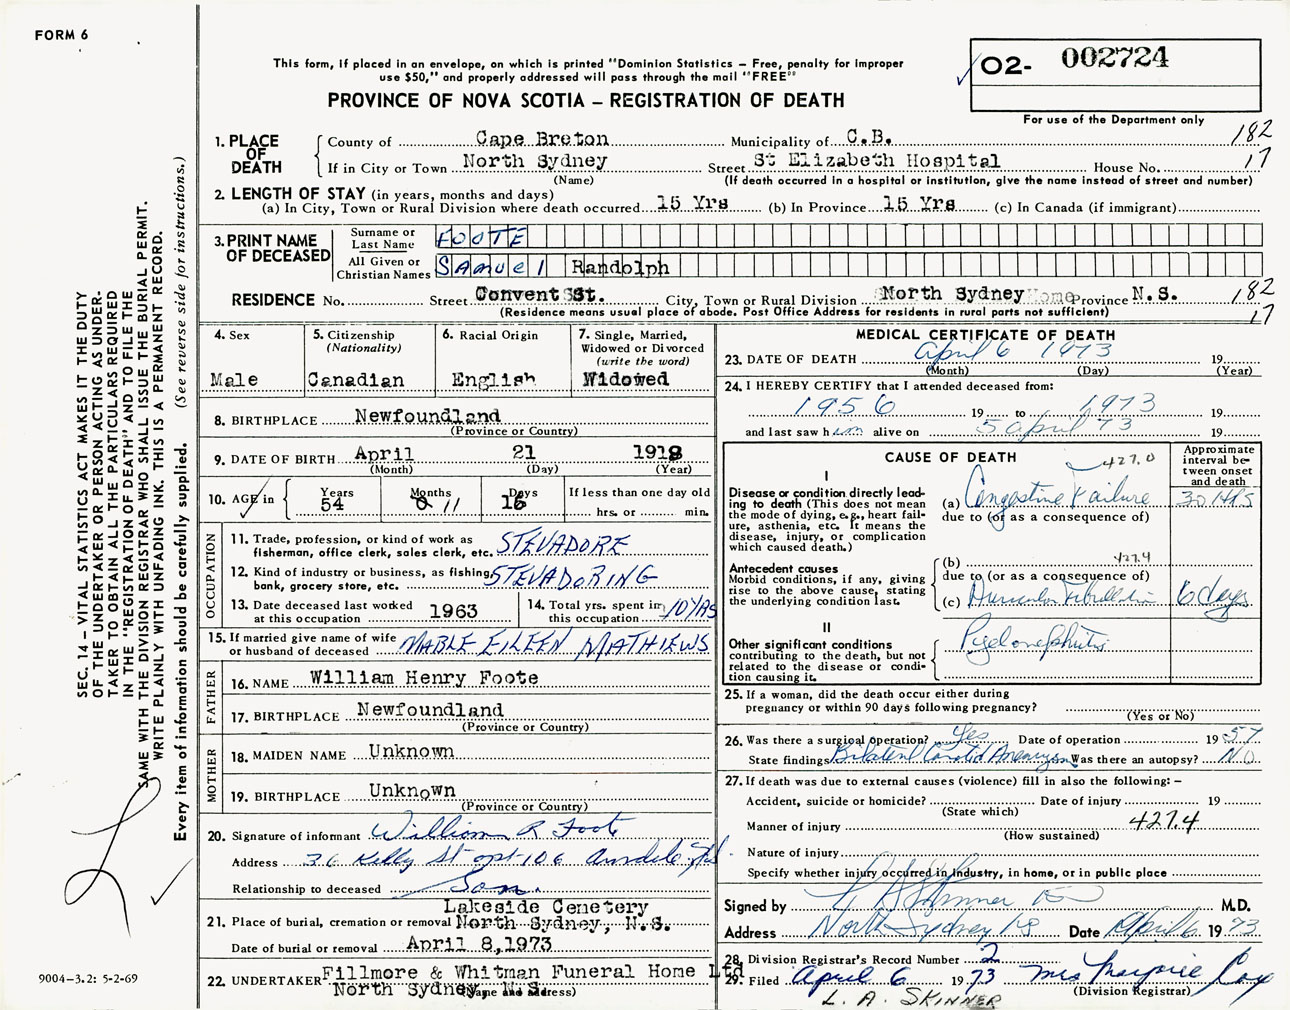 FORM 6
This form, if placed in an envelope, on which is printed "Dominion Statistics – Free, penalty for improper
use $50," and properly addressed will pass through the mail "FREE"
PROVINCE OF NOVA SCOTIA – REGISTRATION OF DEATH
O2- 002724
For use of the Department only
SEC. 14 – VITAL STATISTICS ACT MAKES IT THE DUTY
OF THE UNDERTAKER OR PERSON ACTING AS UNDER-
TAKER TO OBTAIN ALL THE PARTICULARS REQUIRED
IN THE "REGISTRATION OF DEATH" AND TO FILE THE
SAME WITH THE DIVISION REGISTRAR WHO SHALL ISSUE THE BURIAL PERMIT.
WRITE PLAINLY WITH UNFADING INK. THIS IS A PERMANENT RECORD.
Every item of information should be carefully supplied. (See reverse side for instructions.)
1. PLACE OF DEATH
County of Cape Breton Municipality of C.B. 182
If in City or Town North Sydney Street St Elizabeth Hospital House No. 17
(Name) (If death occurred in a hospital or institution, give the name instead of street and number)
2. LENGTH OF STAY (in years, months and days)
(a) In City, Town or Rural Division where death occurred 15 Yrs (b) In Province 15 Yrs (c) In Canada (if immigrant)
3. PRINT NAME OF DECEASED
Surname or Last Name FOOTE
All Given or Christian Names Samuel Randolph
RESIDENCE No. Street Convent St. City, Town or Rural Division North Sydney Home Province N.S. 182
(Residence means usual place of abode. Post Office Address for residents in rural parts not sufficient) 17
4. Sex Male
5. Citizenship (Nationality) Canadian
6. Racial Origin English
7. Single, Married, Widowed or Divorced (write the word) Widowed
8. BIRTHPLACE Newfoundland
(Province or Country)
9. DATE OF BIRTH April 21 1918
(Month) (Day) (Year)
10. AGE in Years 54 Months 11 Days 16 If less than one day old
hrs. or min.
OCCUPATION
11. Trade, profession, or kind of work as
fisherman, office clerk, sales clerk, etc. STEVADORE
12. Kind of industry or business, as fishing,
bank, grocery store, etc. STEVADORING
13. Date deceased last worked at this occupation 1963
14. Total yrs. spent in this occupation 10 YRS
15. If married give name of wife
or husband of deceased MABLE EILEEN MATHIEWS
FATHER
16. NAME William Henry Foote
17. BIRTHPLACE Newfoundland
(Province or Country)
MOTHER
18. MAIDEN NAME Unknown
19. BIRTHPLACE Unknown
(Province or Country)
20. Signature of informant William R Foote
Address 36 Kelly St apt-106
Relationship to deceased Son.
Lakeside Cemetery
21. Place of burial, cremation or removal North Sydney, N.S.
Date of burial or removal April 8,1973
22. UNDERTAKER Fillmore & Whitman Funeral Home Ltd
North Sydney, N.S.
(Name and address)
MEDICAL CERTIFICATE OF DEATH
23. DATE OF DEATH April 6 1973 19
(Month) (Day) (Year)
24. I HEREBY CERTIFY that I attended deceased from:
1956 19 to 1973 19
and last saw him alive on 5 April 73 19
CAUSE OF DEATH
Approximate interval between onset and death
427.0
I
Disease or condition directly lead-
ing to death (This does not mean
the mode of dying, e.g., heart fail-
ure, asthenia, etc. It means the
disease, injury, or complication
which caused death.)
(a) Congestive Failure 30 HRS
due to (or as a consequence of)
Antecedent causes
Morbid conditions, if any, giving
rise to the above cause, stating
the underlying condition last.
(b) 427.4
due to (or as a consequence of)
(c) Auricular Fibrillation 6 days
II
Other significant conditions
contributing to the death, but not
related to the disease or condi-
tion causing it.
Pyelonephritis
25. If a woman, did the death occur either during
pregnancy or within 90 days following pregnancy?
(Yes or No)
26. Was there a surgical operation? Yes Date of operation 19 57
State findings Bilateral Carotid Aneurysm Was there an autopsy? NO
27. If death was due to external causes (violence) fill in also the following: –
Accident, suicide or homicide? Date of injury 19
(State which)
Manner of injury 427.4
(How sustained)
Nature of injury
Specify whether injury occurred in industry, in home, or in public place
Signed by L A Skinner M.D.
Address North Sydney NS Date April 6 1973
28. Division Registrar's Record Number 2
29. Filed April 6 1973 Mrs Marjorie Cox
(Division Registrar)
L. A. SKINNER
9004–3.2: 5-2-69